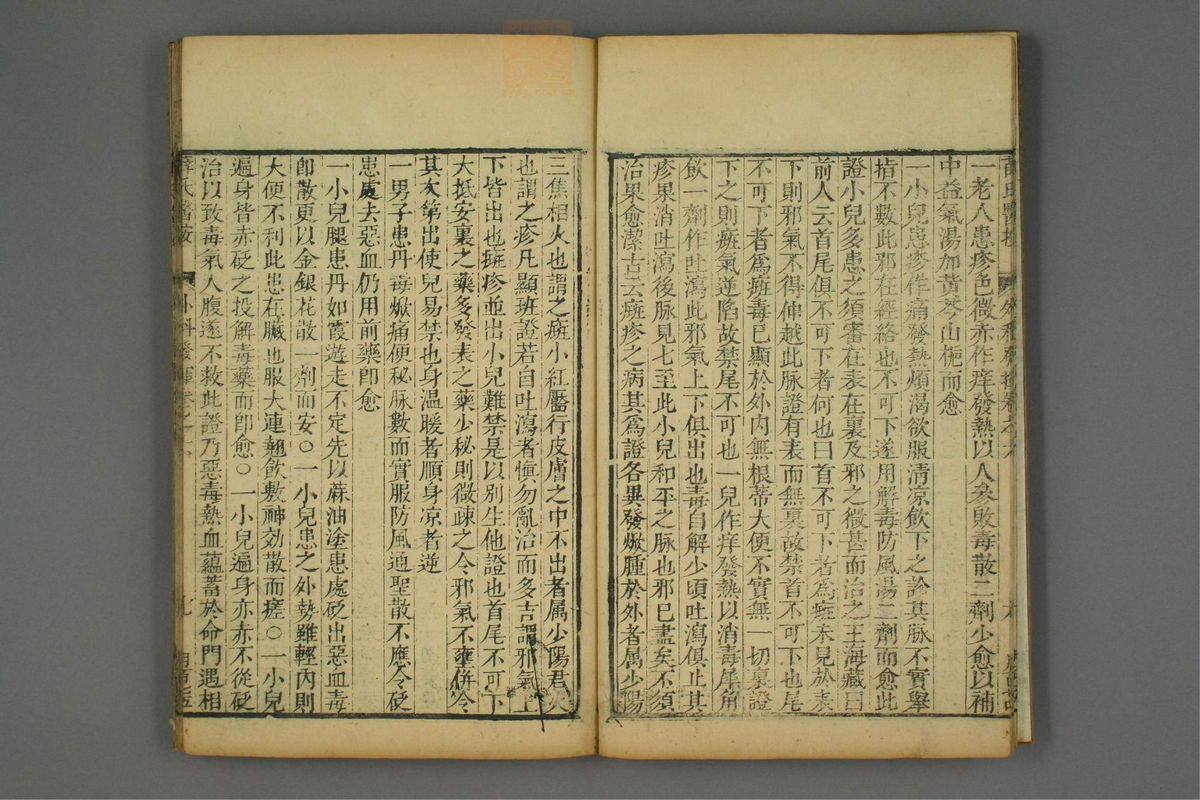 一老人患疹色微赤作痒發熱以人參敗毒散二劑少愈以補
中益氣湯加黃芩山梔而愈
一小兒患疹作痛發熱煩渴欲服清凉飲下之診其脉不實舉
指不數此邪在經絡也不可下遂用解毒防風湯二劑而愈此
證小兒多患之須審在表在裏及邪之微甚而治之王海藏曰
前人云首尾俱不可下者何也曰首不可下者爲癍未見於表
下則邪氣不得伸越此脉證有表而無裏故禁首不可下也尾
不可下者爲癍毒已顯於外内無根蒂大便不實無一切裏證
下之則癍氣逆陷故禁尾不可也一兒作痒發熱以消毒犀角
飲一劑作吐瀉此邪氣上下俱出也毒自解少頃吐瀉俱止其
疹果消吐瀉後脉見七至此小兒和平之脉也邪已盡矣不須
治果愈潔古云癍疹之病其爲證各異發焮腫於外者属少陽
三焦相火也謂之癍小紅靨行皮膚之中不出者属少陽君火
也謂之疹凡顯班證若自吐瀉者慎勿亂治而多吉謂邪氣上
下皆出也癍疹並出小兒難禁是以别生他證也首尾不可下
大抵安裏之藥多發表之藥少秘則微疎之令邪氣不壅併令
其次第出使兒易禁也身温暖者順身凉者逆
一男子患丹毒焮痛便秘脉數而實服防風通聖散不應令砭
患處去惡血仍用前藥即愈
一小兒腿患丹如霞遊走不定先以蔴油塗患處砭出惡血毒
即散更以金銀花散一劑而安○一小兒患之外勢雖輕内則
大便不利此患在臟也服大連翹飲敷神効散而瘥○一小兒
遍身皆赤砭之投解毒藥而即愈○一小兒遍身亦赤不從砭
治以致毒氣入腹遂不救此證乃惡毒熱血蘊蓄於命門遇相
薛氏醫按 外科發揮卷之六 九